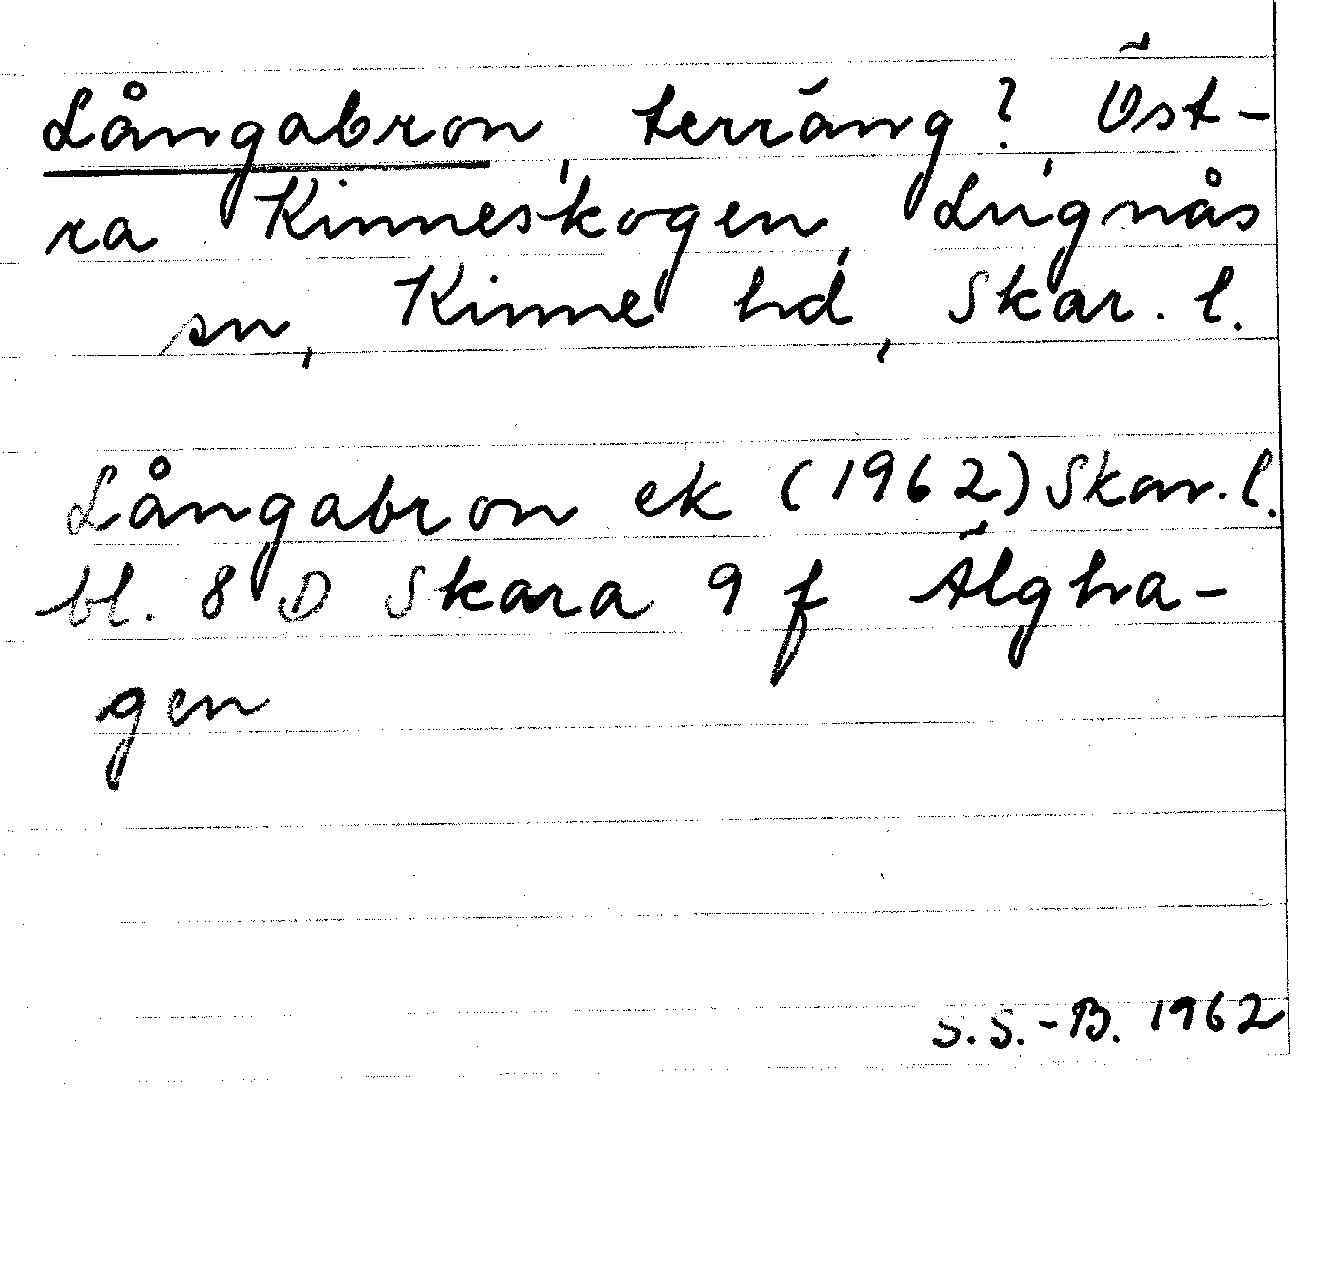 Långabron, terräng?, Öst-
ra Kinneskogen, Lugnås
sn, Kinne hd, Skar. l.
Långabron ek (1962) Skar. l.
bl. 8 D Skara 9 f Älgha-
gen
S.S.-B. 1962